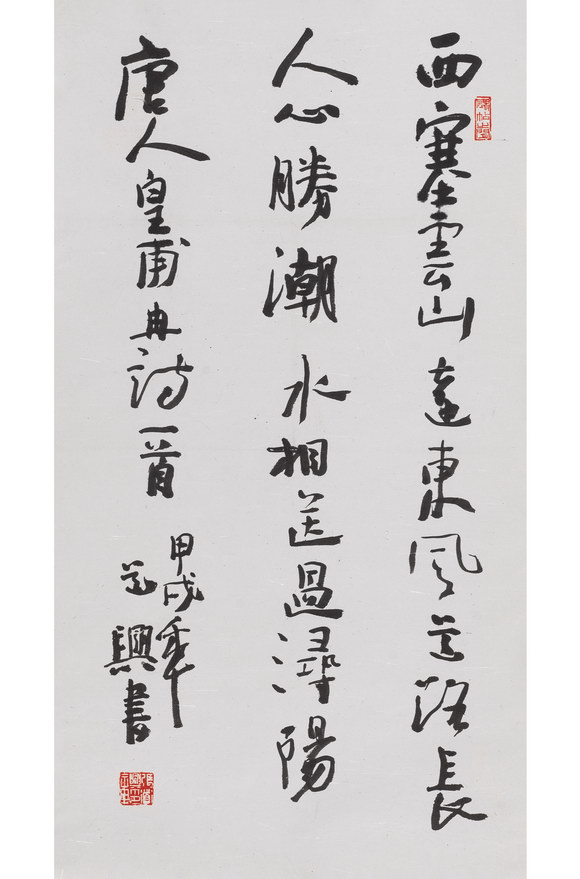 西塞雲山遠東風道路長
人心勝潮水相送過潯陽
唐人皇甫冉詩一首
甲戌年
道興書